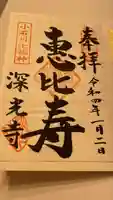 奉拝
令和四年一月二日
小石川七福神
恵比寿
深光寺